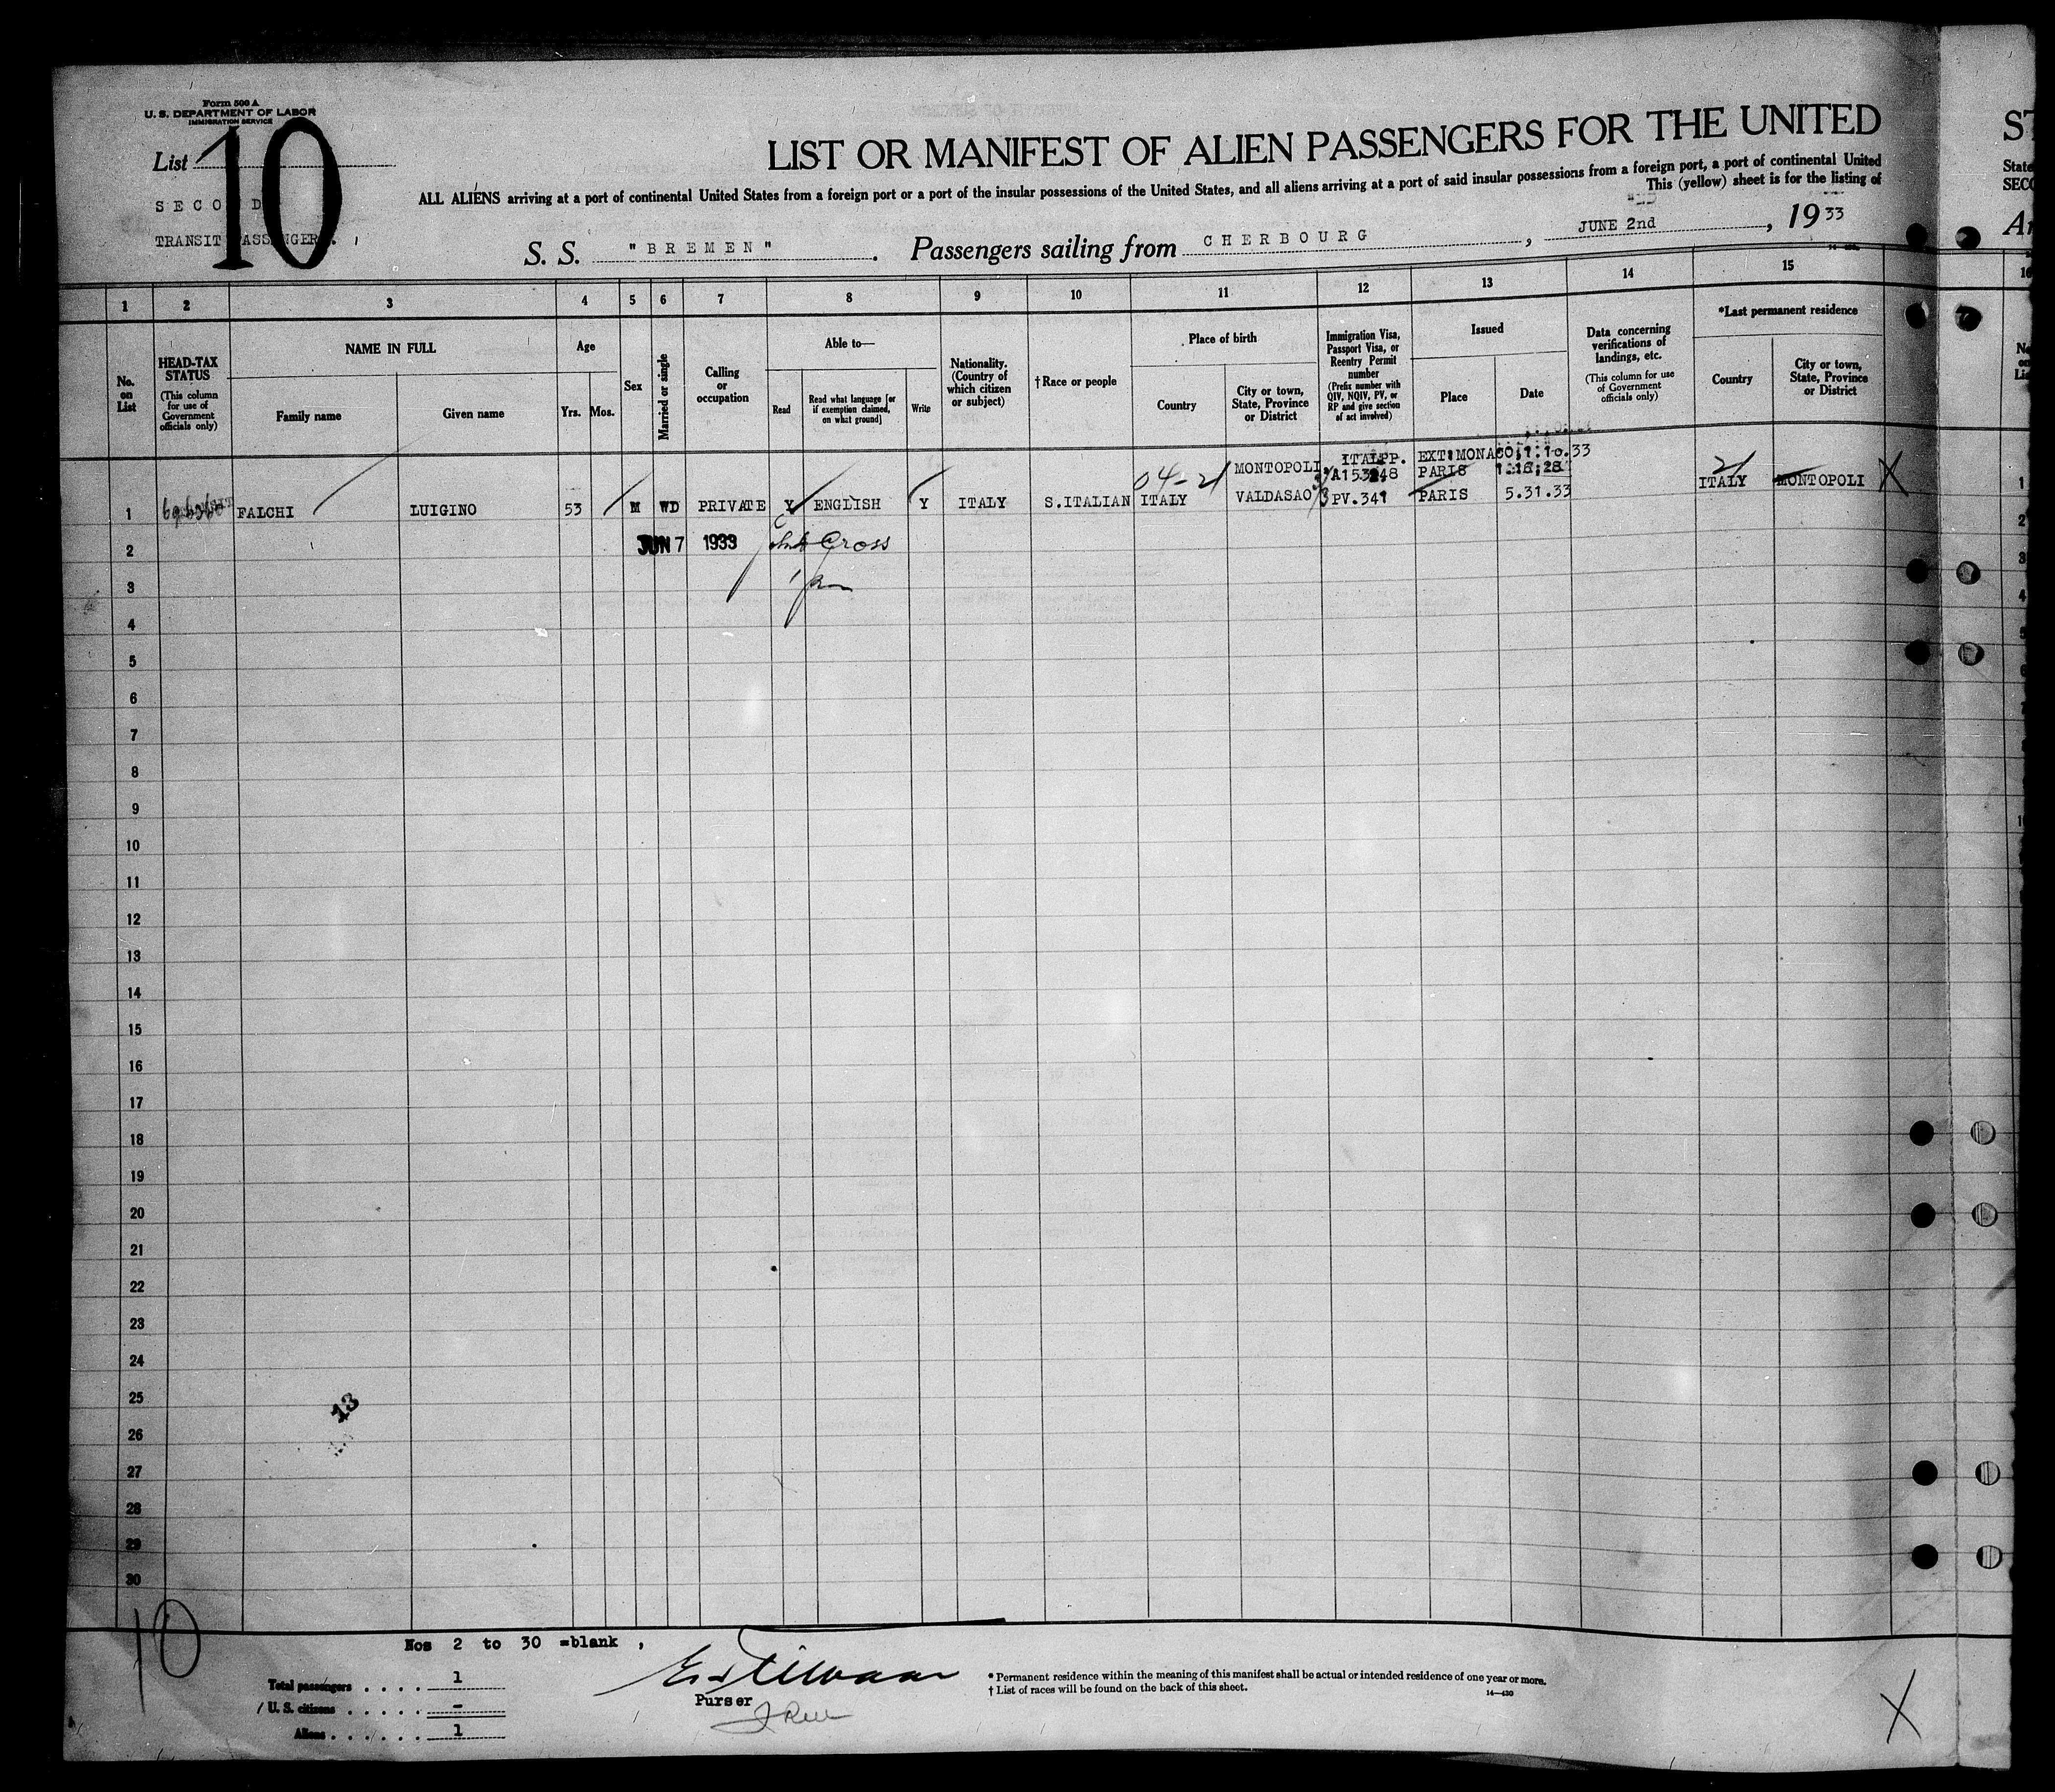 Form 500 A
U. S. DEPARTMENT OF LABOR
IMMIGRATION SERVICE
List 10
SECOND
TRANSIT PASSENGERS.
LIST OR MANIFEST OF ALIEN PASSENGERS FOR THE UNITED
ALL ALIENS arriving at a port of continental United States from a foreign port or a port of the insular possessions of the United States, and all aliens arriving at a port of said insular possessions from a foreign port, a port of continental United
This (yellow) sheet is for the listing of
S. S. "BREMEN". Passengers sailing from CHERBOURG, JUNE 2nd, 1933
ST
State
SEC
1 2 3 4 5 6 7 8 9 10 11 12 13 14 15
No. on List
HEAD-TAX STATUS
(This column for use of Government officials only)
NAME IN FULL
Family name
Given name
Age
Yrs. Mos.
Sex
Married or single
Calling or occupation
Able to—
Read
Read what language [or if exemption claimed, on what ground]
Write
Nationality. (Country of which citizen or subject)
†Race or people
Place of birth
Country
City or town, State, Province or District
Immigration Visa, Passport Visa, or Reentry Permit number
(Prefix number with QIV, NQIV, PV, or RP and give section of act involved)
Issued
Place
Date
Data concerning verifications of landings, etc.
(This column for use of Government officials only)
*Last permanent residence
Country
City or town, State, Province or District
04-21
MONTOPOLI ITAL.PP. EXT:MONACO,1.10.33
A153248 PARIS
21
1 FALCHI LUIGINO 53 M WD PRIVATE Y ENGLISH Y ITALY S.ITALIAN ITALY VALDASAO PV.341 PARIS 5.31.33 ITALY MONTOPOLI X
2 JUN 7 1933 Gross
3
4
5
6
7
8
9
10
11
12
13
14
15
16
17
18
19
20
21
22
23
24
25
13
26
27
28
29
30
10
Nos 2 to 30 =blank ,
Total passengers . . . . 1
U. S. citizens . . . . . -
Aliens . . . . . . 1
Purser
* Permanent residence within the meaning of this manifest shall be actual or intended residence of one year or more.
† List of races will be found on the back of this sheet.
14—430
X